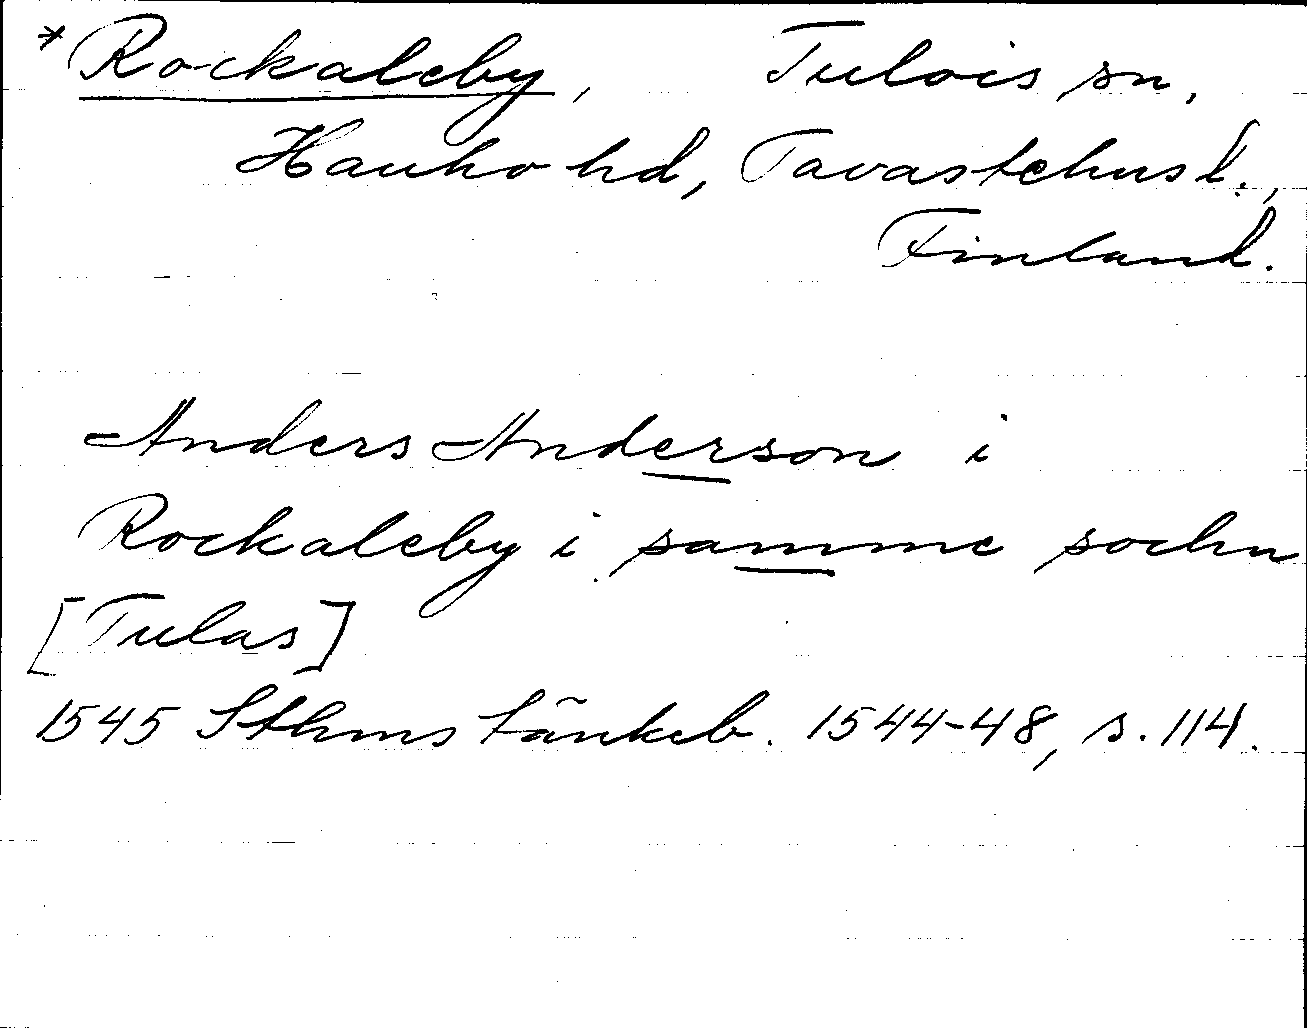 *Rockaleby, Tulois sn,
Hauho hd, Tavastehus l.,
Finland.
Anders Anderson i
Rockaleby i samme sochn
[Tulas]
1545 Sthms tänkeb. 1544-48, s. 114.